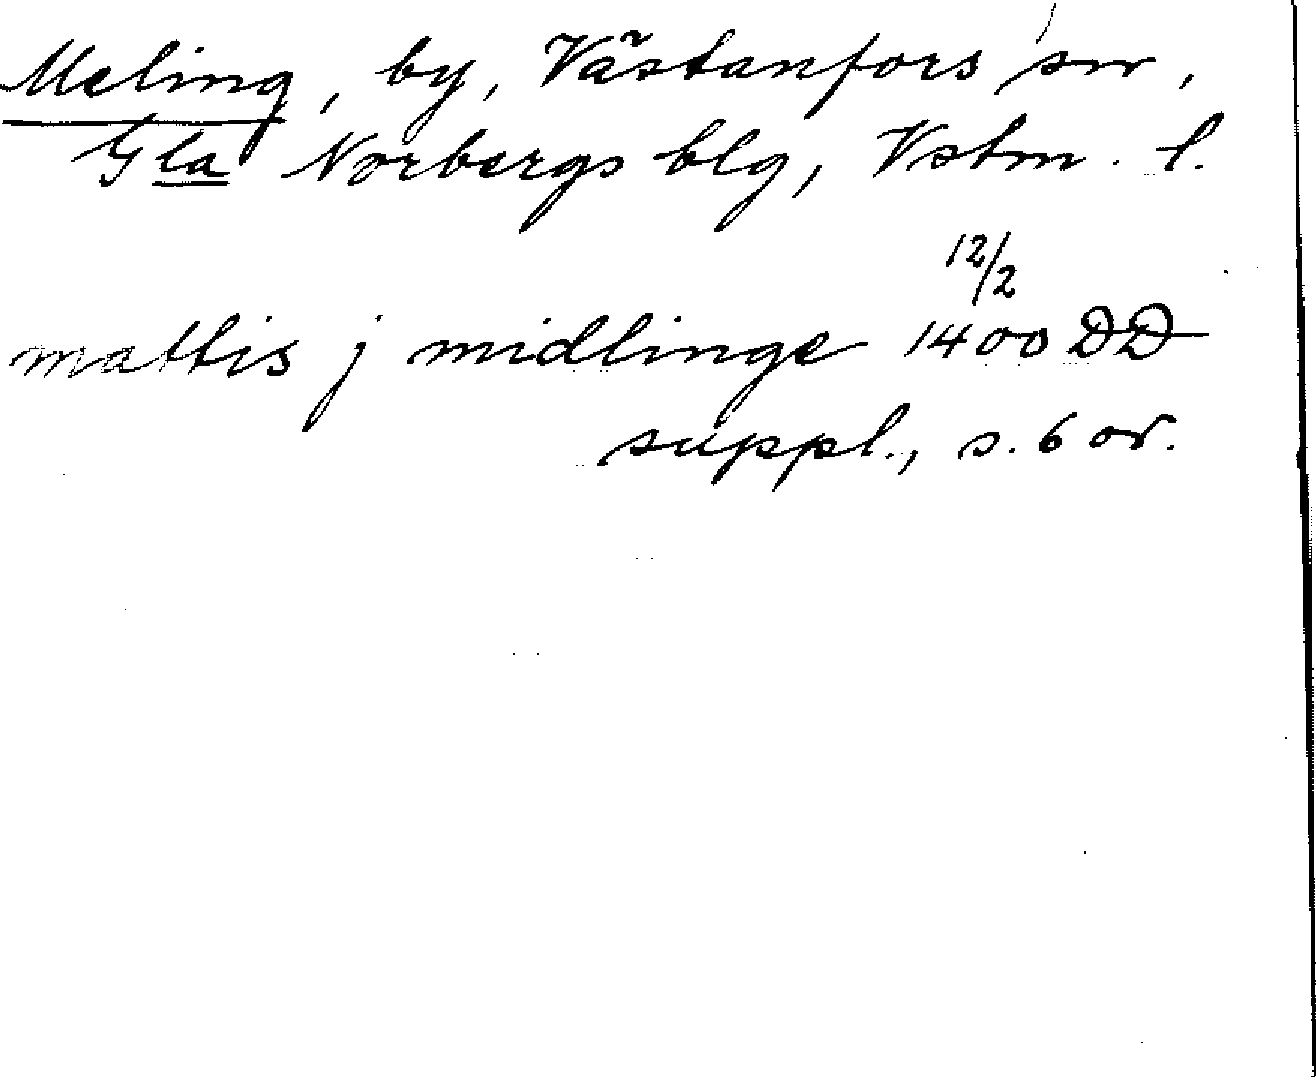 Meling, by, Västanfors sn,
Gla Norbergs blg, Vstm. l.
12/2
mattis j midlinge 1400 DD
suppl., s. 6 or.